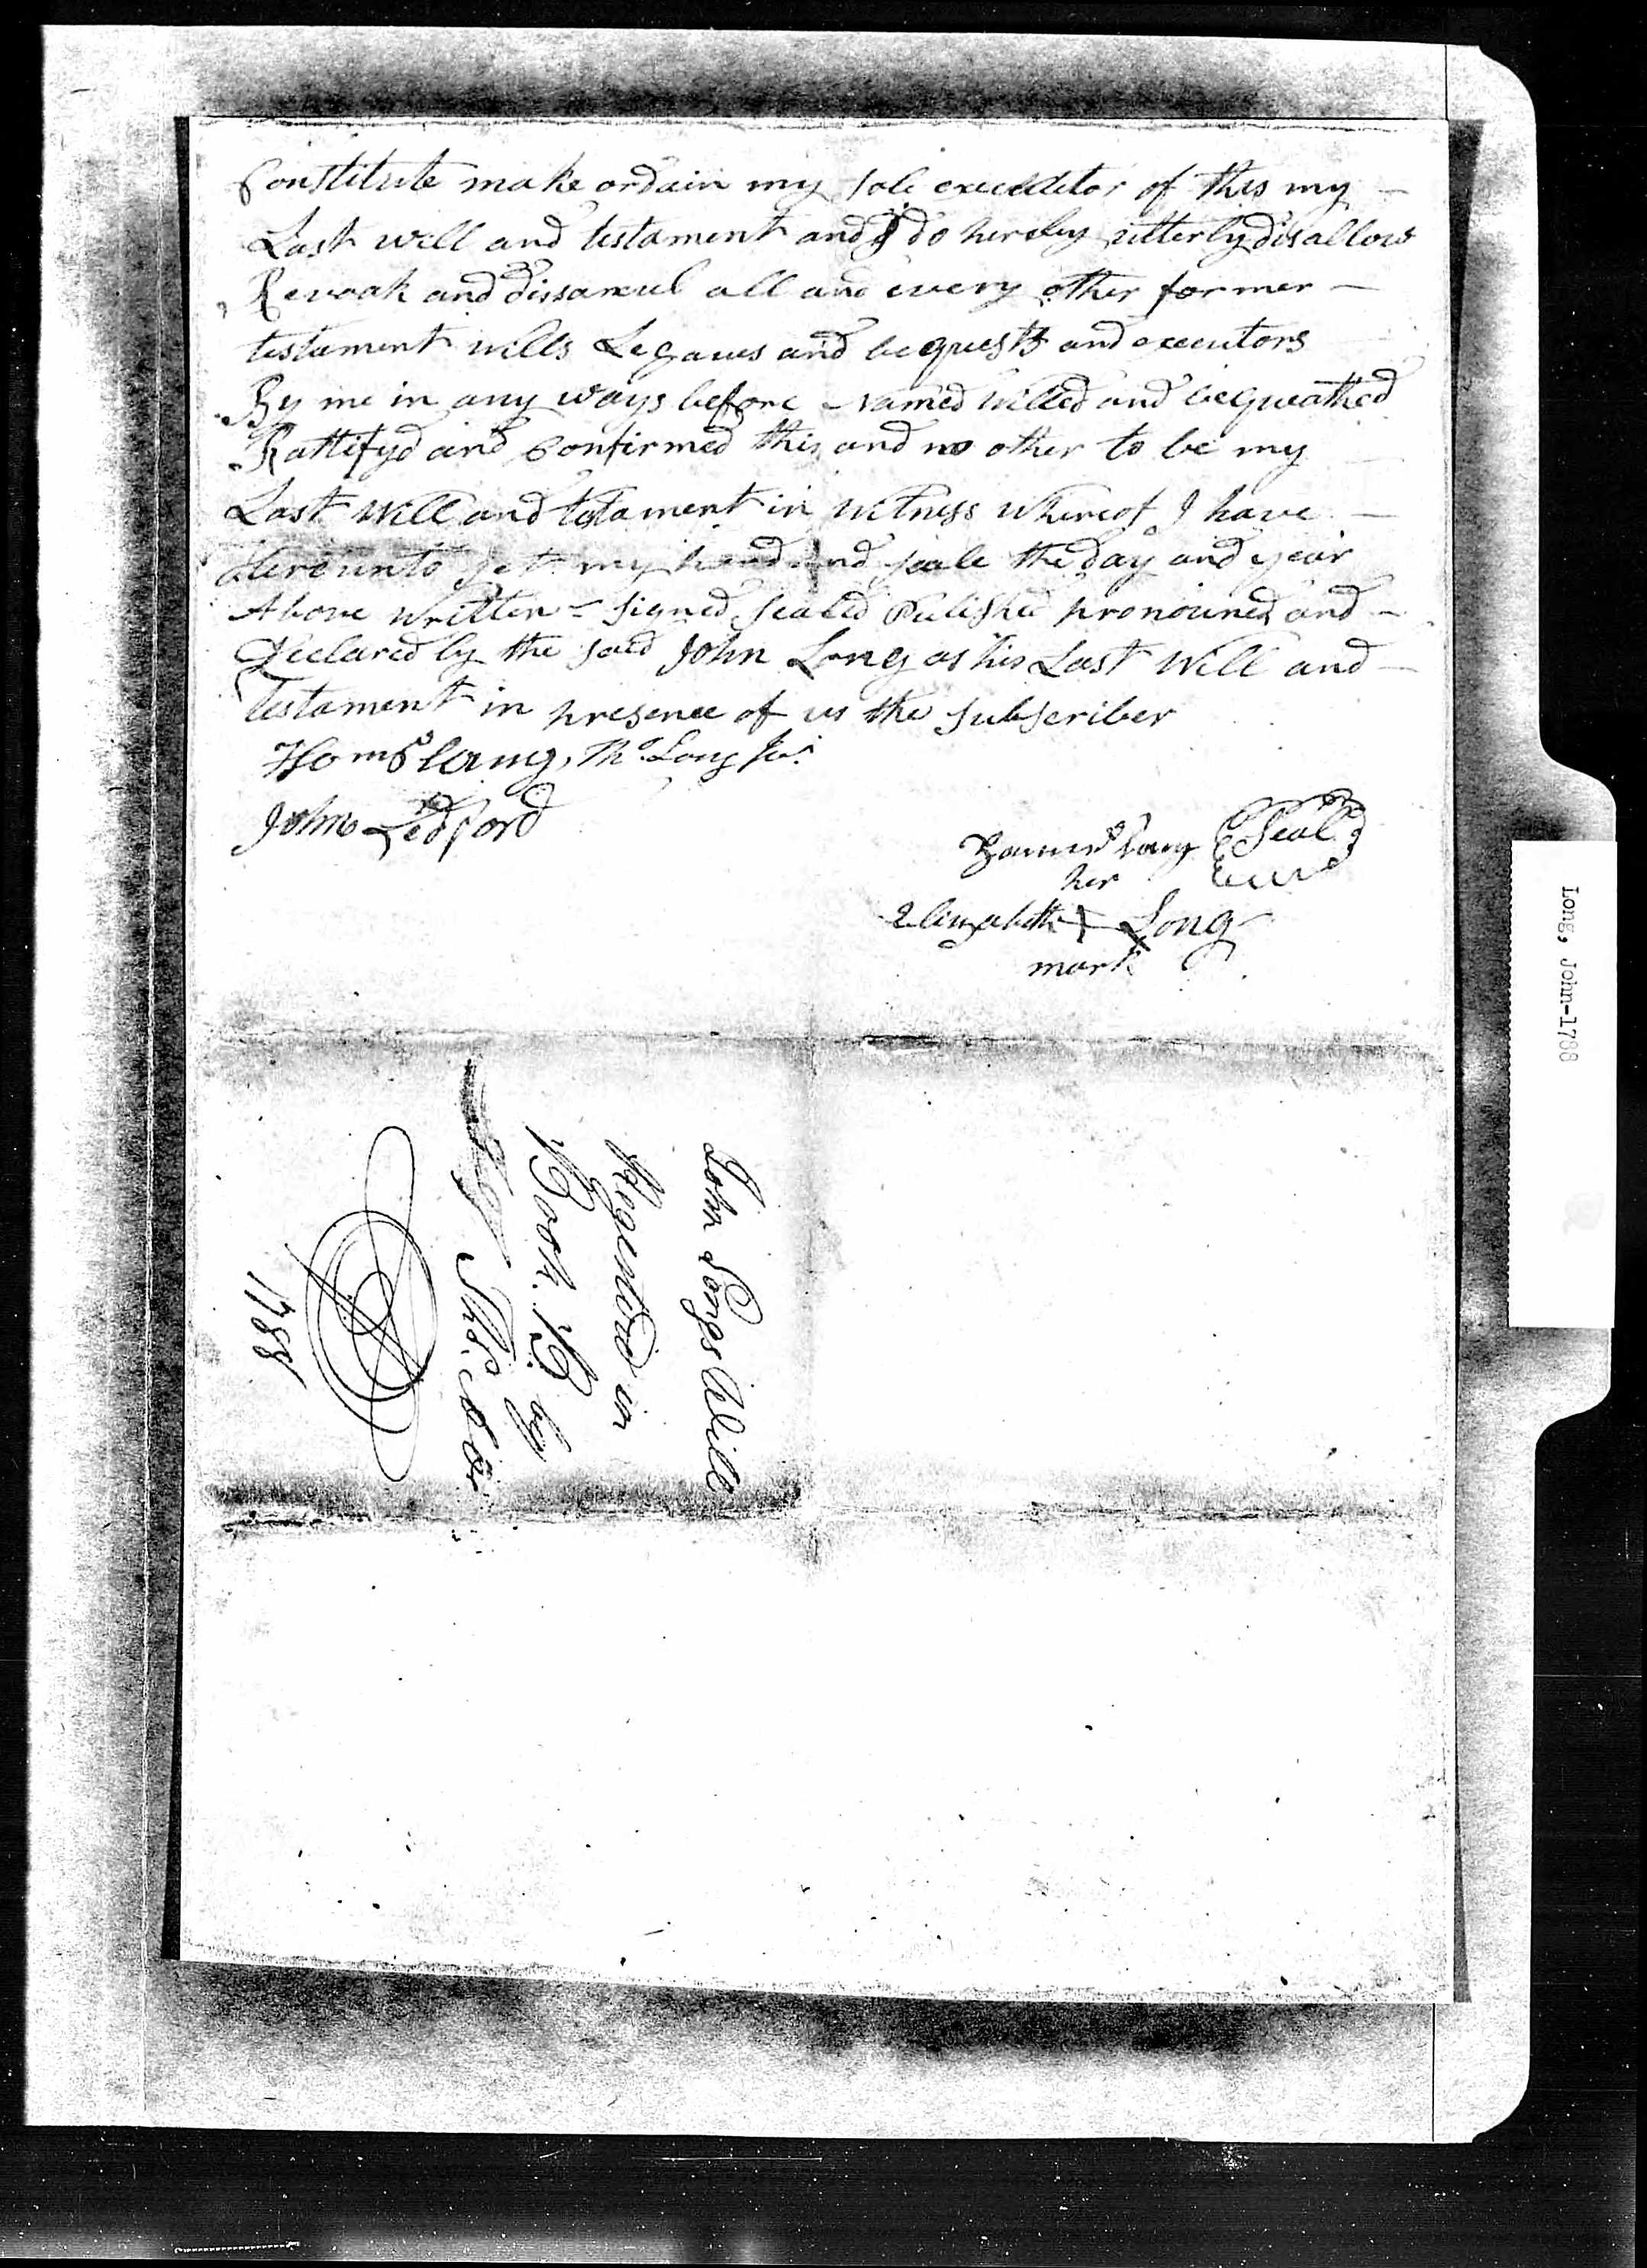 Constitute make ordain my sole execuditor of this my
Last will and testament and I do hereby utterly disallow
Revoak and dissanul all and every other former
testament wills Legacies and bequests and executors
By me in any ways before Named willed and bequeathed
Rattifyd and Confirmed this and no other to be my
Last Will and testament in witness whereof I have
Hereunto set my hand and seale the day and year
Above written – signed sealed pronounced and
Declared by the said John Long as his Last Will and
testament in presence of us the subscriber
Thos Long
John Ledford
Seal
her
Elizabeth + Long
mark
John Longs Will
in
Book. B. by
1788
Long, John-1788